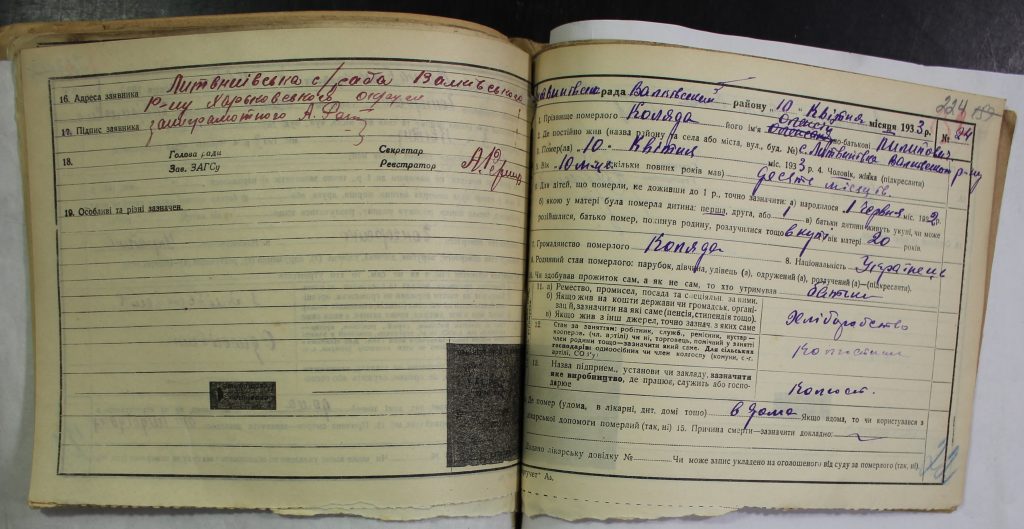 16. Адреса заявника Литвинівська с/рада Валківського
р-ну Харьковського округа
17. Підпис заявника
18. Голова ради Секретар
Зав. ЗАГСу Реєстратор
19. Особливі та різні зазначен.
224
рада Валківський району „10" Квітня місяця 1933 р. № 94
1. Прізвище померлого Коляда його ім'я по-батькові Пилипович
2. Де постійно жив (назва району та села або міста, вул., буд. №) с. Литвинівка Валківського р-ну
3. Помер(ла) 10 Квітня міс. 1933 р. 4. Чоловік, жінка (підкреслити)
5. Вік 10 міс. (скільки повних років мав) десять місяців
6. Для дітей, що померли, не доживши до 1 р., точно зазначити: а) народилося 1 Червня міс. 1932 р.
б) якою у матері була померла дитина: перша, друга, або 1 в) батьки дитини живуть укупі, чи може
розійшлися, батько помер, покинув родину, розлучилися тощо вкупі вік матері 20 років.
7. Громадянство померлого Коляда 8. Національність Українець
9. Родинний стан померлого: парубок, дівчина, удівець (а), одружений (а), розлучений (а)—(підкреслити).
10. Чи здобував прожиток сам, а як не сам, то хто утримував батьки
11. а) Ремество, промисел, посада та спеціальн. за ними.
б) Якщо жив на кошти держави чи громадськ. органі-
зацій, зазначити на які саме (пенсія, стипендія тощо).
в) Якщо жив з інш джерел, точно зазнач. з яких саме Хліборобство
12. Стан за заняттям: робітник, служб., ремісник, кустар—
кооперов. (чл. артілі) чи ні, торговець, помічний у занятті
член родини тощо—зазначити який саме. Для сільських
господарів: одноосібник чи член колгоспу (комуни, с.-г.
артілі, СОЗ'у)
13. Назва підприєм., установи чи закладу, зазначити
яке виробництво, де працює, служить або госпо-
дарює
14. Де помер (удома, в лікарні, дит. домі тощо) в дома Якщо вдома, то чи користувався з
лікарської допомоги померлий (так, ні) 15. Причина смерти—зазначити докладно:
Видано лікарську довідку № Чи може запис укладено на оголошеного від суду за померлого (так, ні).